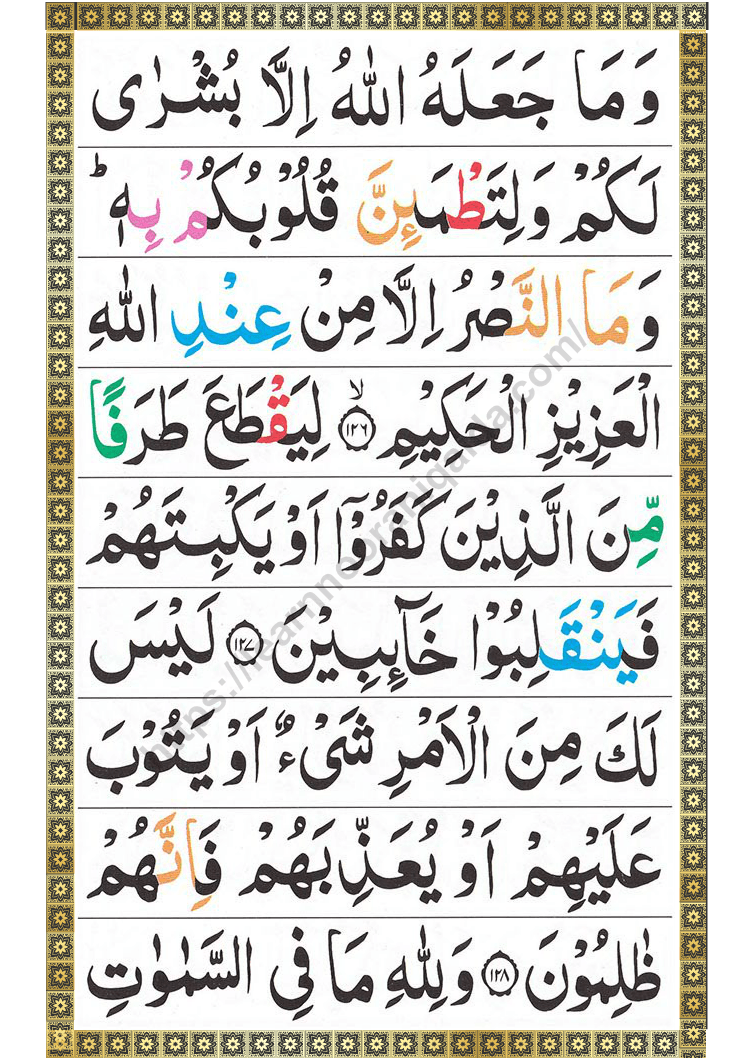 وَمَا جَعَلَهُ اللّٰهُ اِلَّا بُشْرٰى
لَكُمْ وَلِتَطْمَئِنَّ قُلُوْبُكُمْ بِهٖ ؕ
وَمَا النَّصْرُ اِلَّا مِنْ عِنْدِ اللّٰهِ
الْعَزِيْزِ الْحَكِيْمِ ۙ‏﴿۱۲۶﴾ لِيَقْطَعَ طَرَفًا
مِّنَ الَّذِيْنَ كَفَرُوْۤا اَوْ يَكْبِتَهُمْ
فَيَنْقَلِبُوْا خَآئِبِيْنَ ﴿۱۲۷﴾ لَيْسَ
لَكَ مِنَ الْاَمْرِ شَىْءٌ اَوْ يَتُوْبَ
عَلَيْهِمْ اَوْ يُعَذِّبَهُمْ فَاِنَّهُمْ
ظٰلِمُوْنَ ﴿۱۲۸﴾ وَلِلّٰهِ مَا فِى السَّمٰوٰتِ
https://learnnooraniqaida.com/